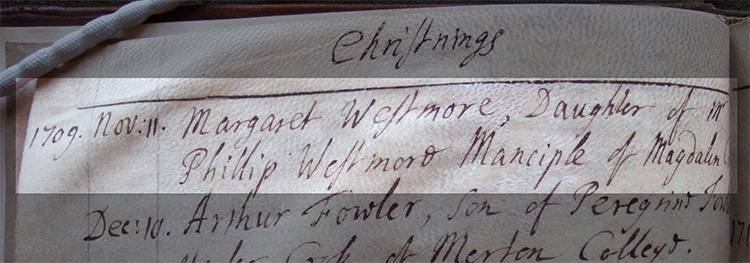 Christnings
1709. Nov: 11. Margaret Westmore, Daughter of mr
Phillip Westmore Manciple of Magdalen
Dec: 10. Arthur Fowler, Son of Peregrine
Under Cook of Merton Colledge.